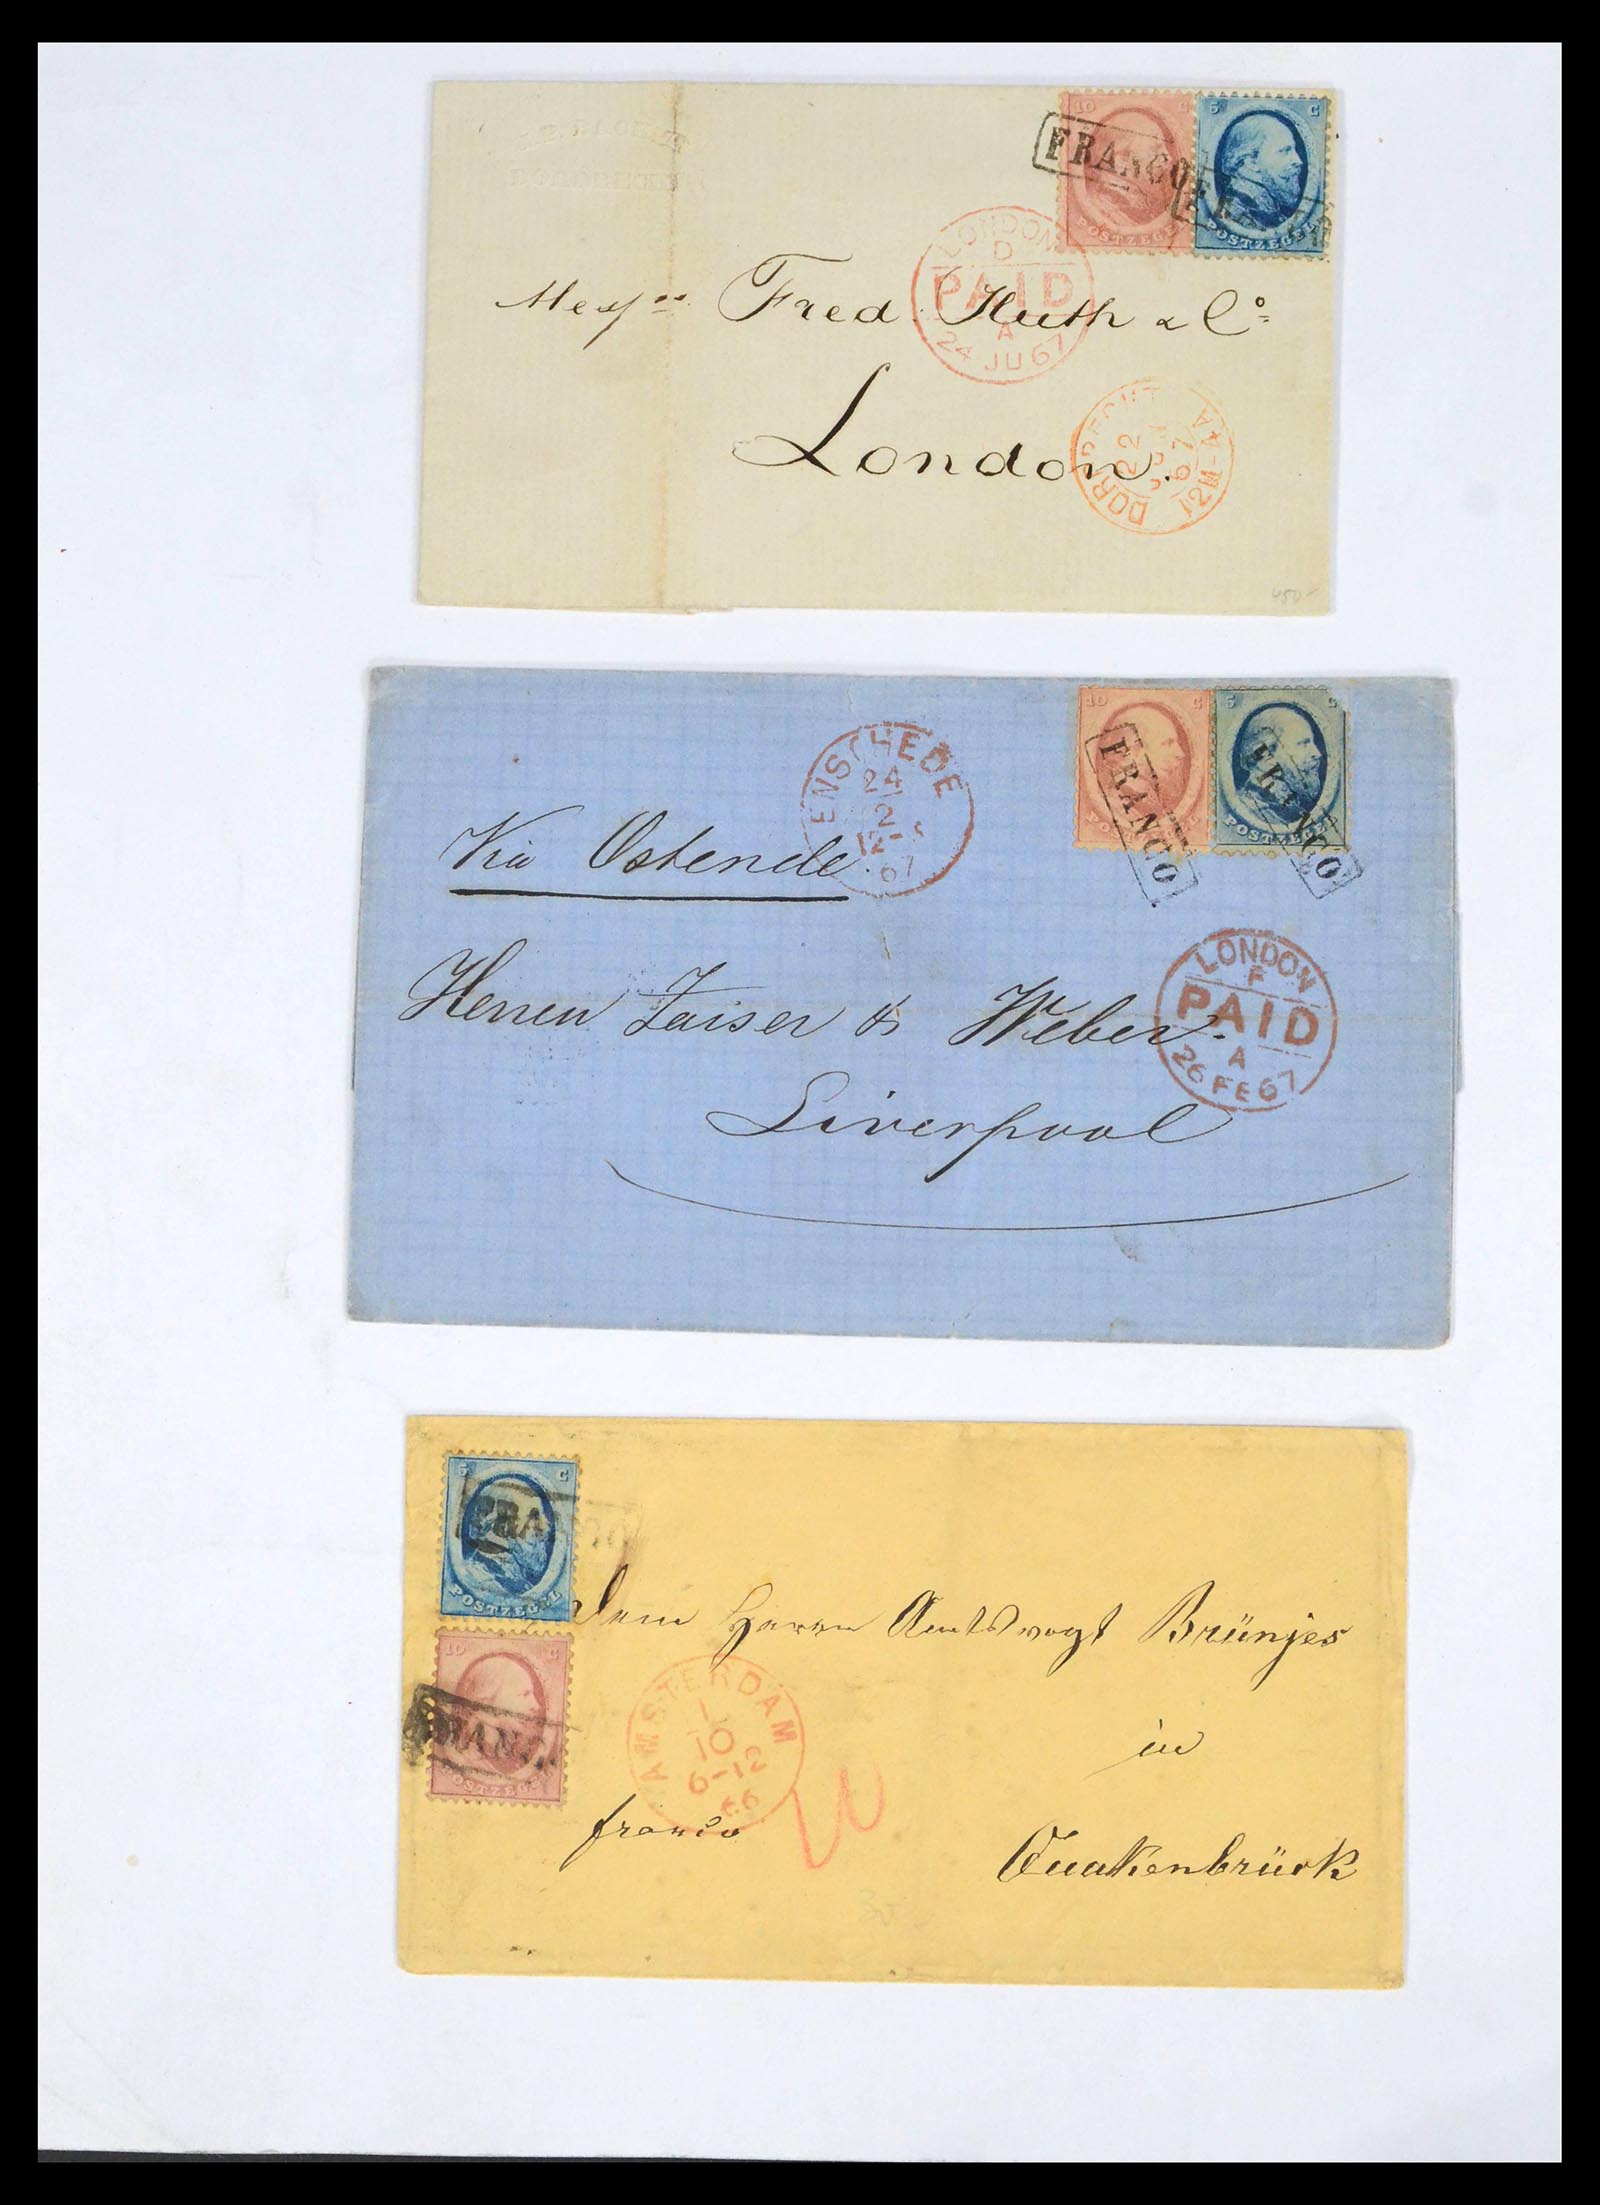 10 C
5 C
FRANCO
POSTZEGEL
POSTZEGEL
LONDON
D
PAID
A
24 JU 67
Messrs Fred. Huth & Co
London.
DORDRECHT
22
JUN
67
12M-4A
450-
10 C
5 C
FRANCO
FRANCO
POSTZEGEL
ENSCHEDE
24
2
12-
67
Via Ostende.
LONDON
F
PAID
A
26 FE 67
Herren Zaiser & Weber.
Liverpool
5 C
FRANCO
POSTZEGEL
10 C
FRANC
POSTZEGEL
Dem Herrn Amtsvogt Brünjes
AMSTERDAM
1
10
6-12
66
in
franco
Quakenbrück